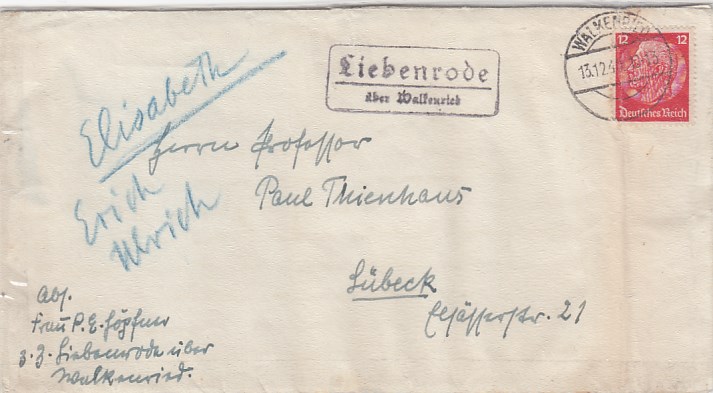 WALKENRIED
13.12.4
12 12
Deutsches Reich
Liebenrode
über Walkenried
Elisabeth
Erich
Ulrich
Herrn Professor
Paul Thienhaus
Lübeck
Elsässerstr. 21
Abs.
Frau P. E. Höpfner
z. Z. Liebenrode über
Walkenried.